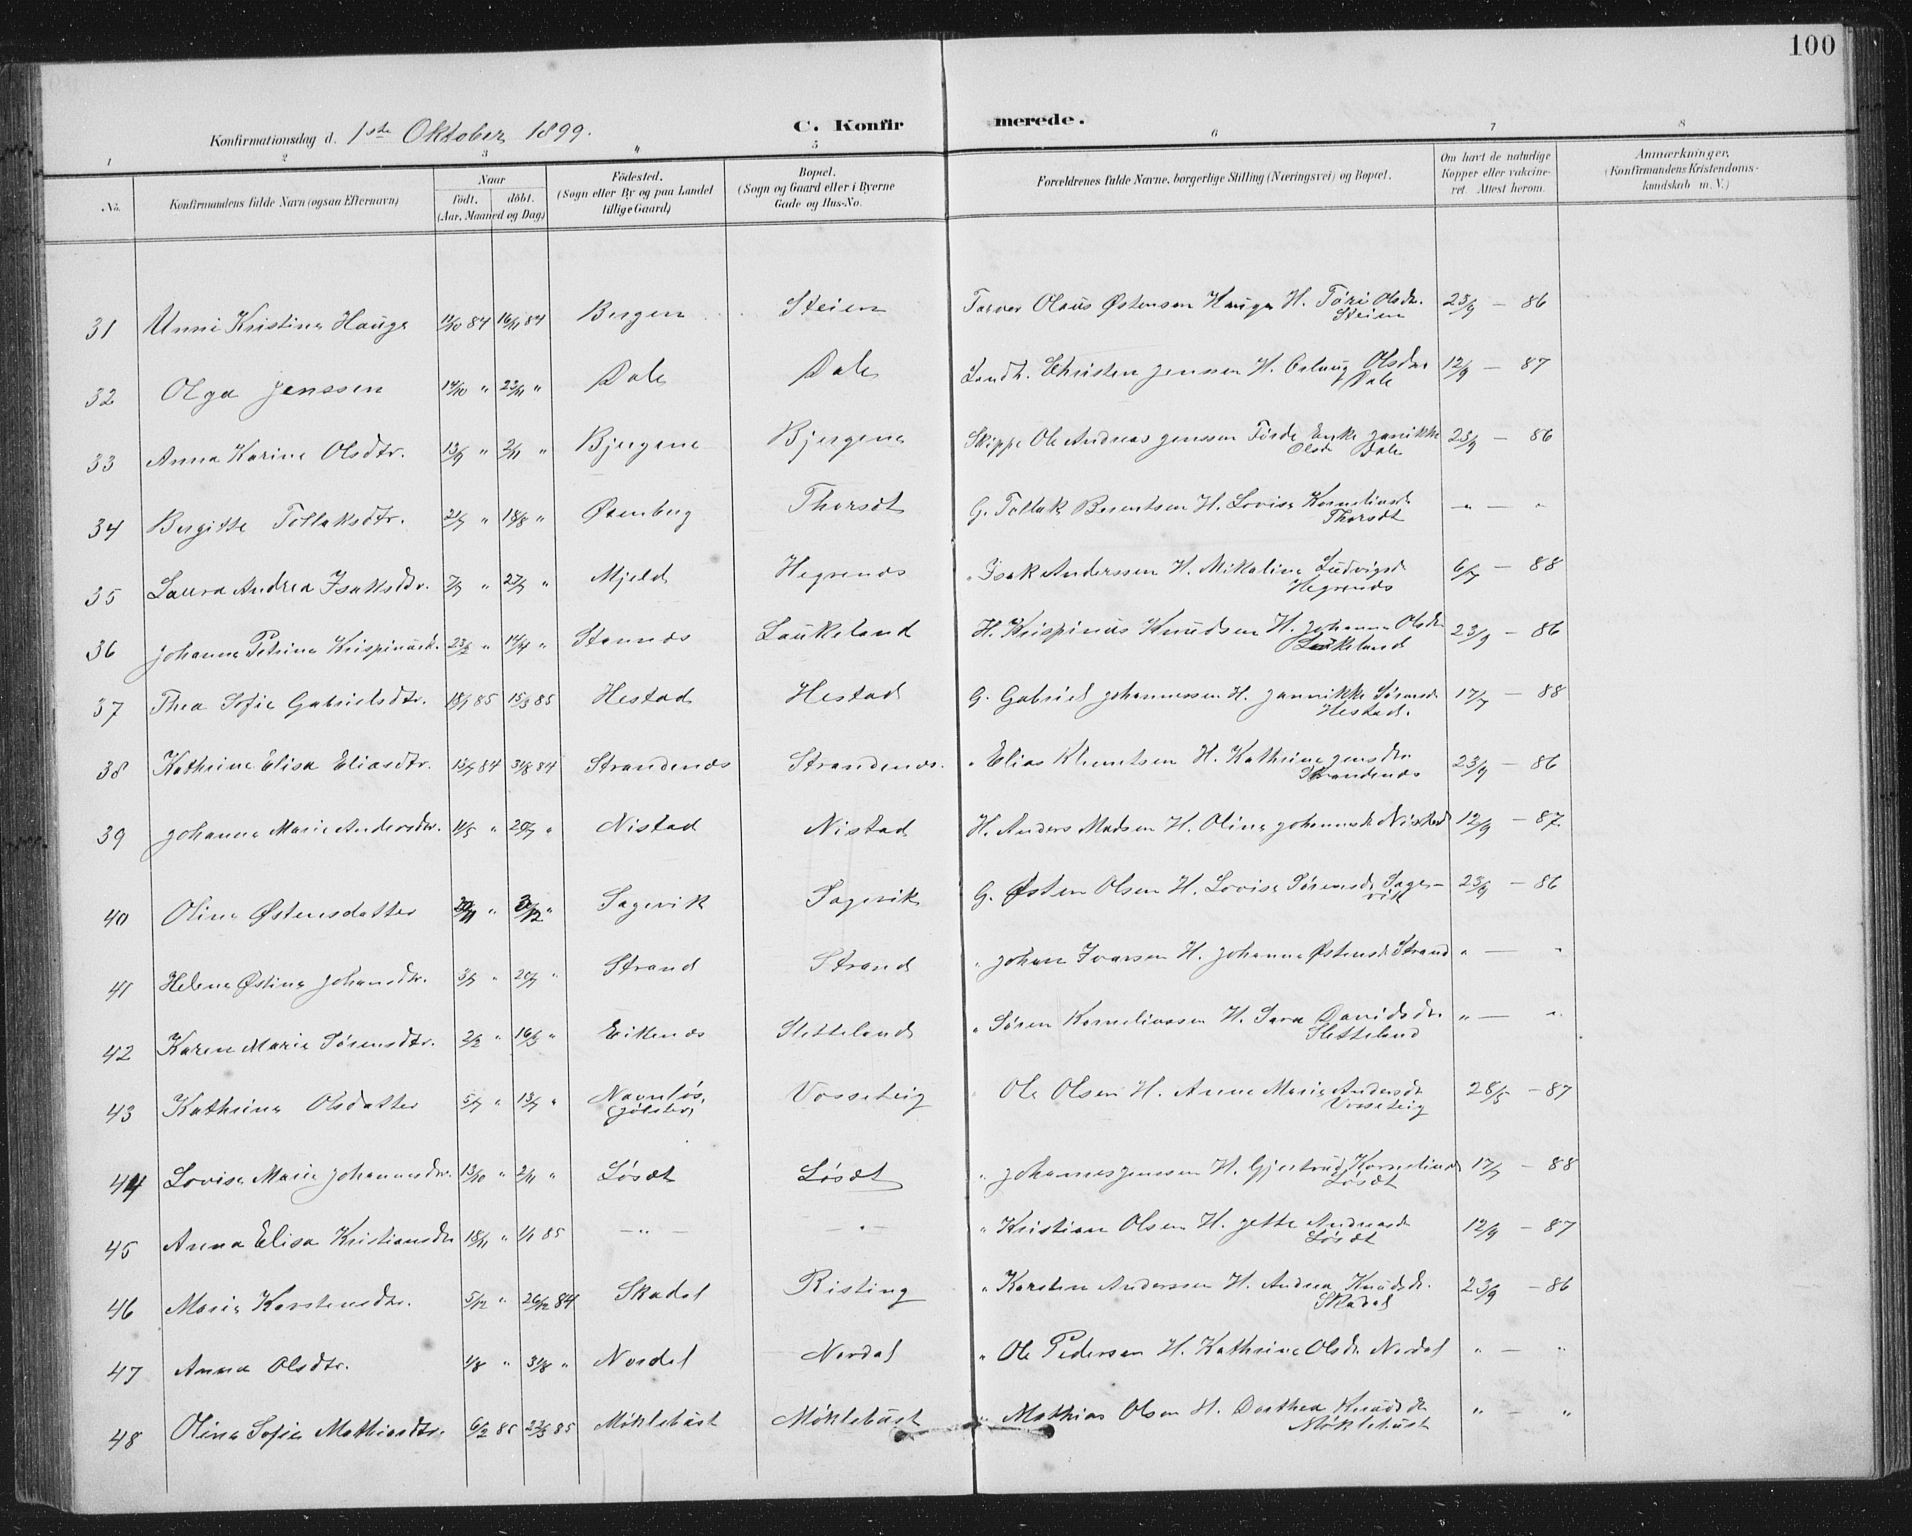 100
Konfirmationsdag d. 1ste Oktober 1899. C. Konfirmerede.
1 2 3 " 5 6 7 8
No. Konfirmandens fulde Navn (ogsaa Efternavn) Naar født. døbt. (Aar, Maaned og Dag) Fødested. (Sogn eller By og paa Landet tillige Gaard) Bopæl. (Sogn og Gaard eller i Byerne Gade og Hus-No. Forældrenes fulde Navne, borgerlige Stilling (Næringsvei) og Bopæl. Om havt de naturlige Kopper eller vakcineret. Attest herom. Anmærkninger, (Konfirmandens Kristendomskundskab m. V.)
31 Unni Kristine Hauge 84 16/11 84 Bergen Steien Farver Olaus Østensen Hauge H. Olsdr. Steien 23/9 — 86
32 Olga Jenssen 14/10 " 23/11 " Dale Dale Landh. Christen Jenssen H. Olsdtr Dale 12/9 — 87
33 Anna Karine Olsdtr. 13/9 " 2/11 " Bjergene Bjergene Skipper Ole Andreas Jenssen Førde Enke Jannikke Olsd Dale 23/9 — 86
34 Bergitte Tollaksdtr. 21/7 " 18/8 " Øvenberg Thorsdt G. Tollak Berentsen H. Lovise Korneliusd Thorsdt " — "
35 Laura Andrea Isaksdtr. 7/7 " 27/7 " Mjeld Hegrenæs " Isak Anderssen H. Mikaline Ludvigsd Hegrenæs 6/7 — 88
36 Johanne Petrine Krispinusd. 23/2 " 14/4 " Stannæs Laukeland H. Krispinus Knudsen H. Johanne Olsdr Laukeland 23/9 — 86
37 Thea Sofie Gabrielsdtr. 18/1 85 15/3 85 Hestad Hestad G. Gabriel Johannessen H. Jannikke Sørensd Hestad. 17/7 — 88
38 Kathrine Elisa Eliasdtr. 13/7 84 31/8 84 Strandenæs Strandenæs. " Elias Klemetsen H. Kathrine Jensdr Strandenæs 23/9 — 86
39 Johanne Marie Andersdtr. 11/5 " 20/7 " Nistad Nistad H. Anders Madsen H. Oline Johannesd Nistad 12/9 — 87.
40 Oline Østensdatter " " Sagevik Sagevik G. Østen Olsen H. Lovise Sørensd Sagevik 23/9 — 86
41 Helene Østine Johansdtr. 3/7 " 20/7 " Strand Strand " Johan Ivarsen H. Johanne Østensd Strand " — "
42 Karen Marie Sørensdtr. 2/2 " 16/3 " Eikenæs Sletteland " Søren Korneliussen H. Sara Davidsdr Sletteland " — "
43 Kathrine Olsdatter 5/7 " 13/7 " Navnløs, (Jølster) Vosseteig Ole Olsen H. Anne Marie Andersdt Vosseteig 28/5 — 87
44 Lovise Marie Johannesdtr. 13/10 " 2/11 " Løsdt Løsdt " Johannes Jenssen H. Gjertrud Korneliusd Løsdt 17/7 — 88
45 Anna Elisa Kristiansdtr 18/11 " 1/1 85 — " — — " — " Kristian Olsen H. Jette Andreasd Løsdt 12/9 — 87
46 Marie Karstensdtr. 5/12 " 26/12 84 Skadal Risting " Karsten Anderssen H. Andrea Knudsd. Skadal 23/9 — 86
47 Anna Olsdtr. 1/8 " 31/8 " Nordal Nordal " Ole Pedersen H. Kathrine Olsdr Nordal " — "
48 Oline Sofie Mathiasdtr. 6/2 85 22/3 85 Møklebust Møklebust " Mathias Olsen H. Dorthea Knudsdr Møklebust " — "